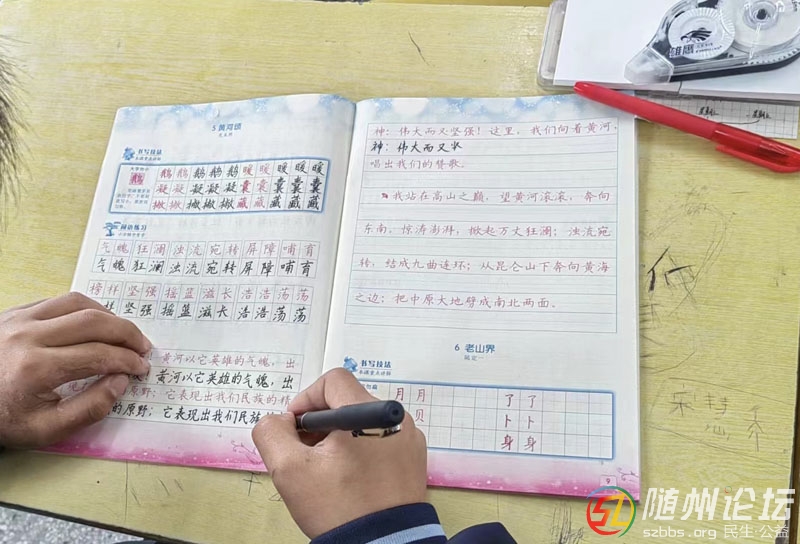 5 黄河颂
书写技法
鹅 鹅 鹅 鹅 鹅 鹅 暖 暖 暖 暖 暖
凝 凝 凝 凝 凝 囊 囊 囊 囊 囊
撇 撇 撇 撇 撇 藏 藏 藏 藏 藏
词语练习
气魄 狂澜 浊流 宛转 屏障 哺育
气魄 狂澜 浊流 宛转 屏障 哺育
榜样 坚强 摇篮 滋长 浩浩荡荡
样 坚强 摇篮 滋长 浩浩荡荡
黄河以它英雄的气魄,出
黄河以它英雄的气魄,出
的原野;它表现出我们民族的精
的原野;它表现出我们民族
神:伟大而又坚强!这里,我们向着黄河,
神:伟大而又坚
唱出我们的赞歌。
我站在高山之巅,望黄河滚滚,奔向
东南。惊涛澎湃,掀起万丈狂澜;浊流宛
转,结成九曲连环;从昆仑山下奔向黄海
之边;把中原大地劈成南北两面。
6 老山界
陆定一
书写技法
月 月 了 了
贝 卜 卜
身 身
9
雄鹰
随州论坛
szbbs.org 民生·公益